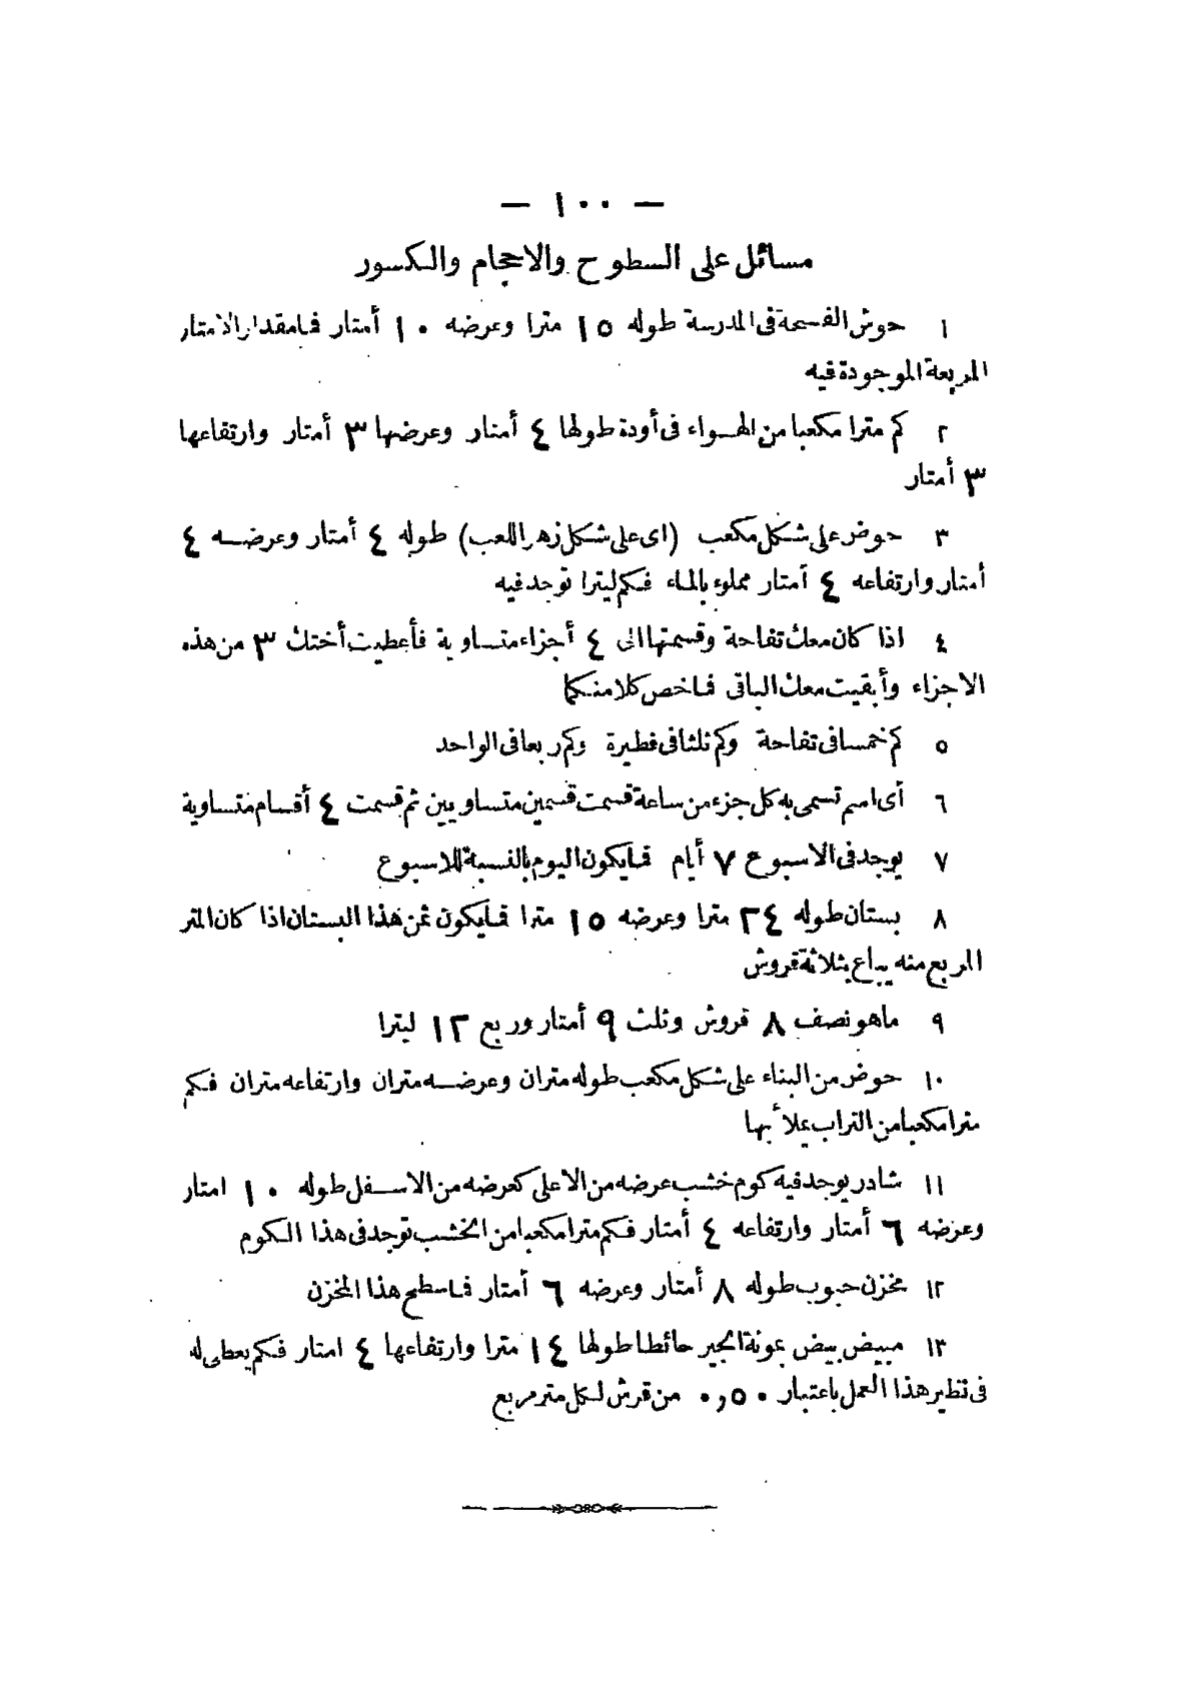 — ١٠٠ —
مسائل على السطوح والاحجام والكسور
١ حوش الفسحة فى المدرسة طوله ١٥ مترا وعرضه ١٠ أمتار فامقدار الامتار
المربعة الموجودة فيه
٢ كم مترا مكعبا من الهواء فى أودة طولها ٤ أمتار وعرضها ٣ أمتار وارتفاعها
٣ أمتار
٣ حوض على شكل مكعب (اى على شكل زهر اللعب) طوله ٤ أمتار وعرضه ٤
أمتار وارتفاعه ٤ أمتار مملوء بالماء فكم ليترا توجد فيه
٤ اذا كان معك تفاحة وقسمتها الى ٤ أجزاء متساوية فأعطيت أختك ٣ من هذه
الاجزاء وأبقيت معك الباقى فاخص كلا منكما
٥ كم خمسا فى تفاحة وكم ثلثا فى فطيرة وكم ربعا فى الواحد
٦ أى اسم تسمى به كل جزء من ساعة قسمت قسمين متساويين ثم قسمت ٤ أقسام متساوية
٧ يوجد فى الاسبوع ٧ أيام فايكون اليوم بالنسبة للاسبوع
٨ بستان طوله ٢٤ مترا وعرضه ١٥ مترا فايكون ثمن هذا البستان اذا كان المتر
المربع منه يباع بثلاثة قروش
٩ ماهو نصف ٨ قروش وثلث ٩ أمتار وربع ١٢ ليترا
١٠ حوض من البناء على شكل مكعب طوله متران وعرضه متران وارتفاعه متران فكم
مترا مكعبا من التراب يملأ بها
١١ شادر يوجد فيه كوم خشب عرضه من الاعلى كعرضه من الاسفل طوله ١٠ امتار
وعرضه ٦ أمتار وارتفاعه ٤ أمتار فكم مترا مكعبا من الخشب توجد فى هذا الكوم
١٢ مخزن حبوب طوله ٨ أمتار وعرضه ٦ أمتار فاسطح هذا المخزن
١٣ مبيض بيض بمونة الجير حائطا طولها ١٤ مترا وارتفاعها ٤ امتار فكم يعطى له
فى نظير هذا العمل باعتبار ٠,٥٠ من قرش لكل متر مربع